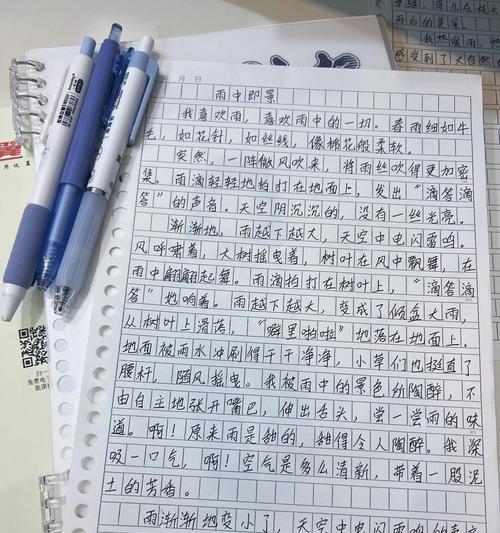 月 日
雨中即景
我喜欢雨，喜欢雨中的一切。春雨细如牛
毛，如花针，如丝线，像棉花般柔软。
突然，一阵微风吹来，将雨丝吹得更加密
集。雨滴轻轻地拍打在地面上，发出“滴答滴
答”的声音。天空阴沉沉的，没有一丝光亮。
渐渐地，雨越下越大，天空中电闪雷鸣。
风呼啸着，大树摇曳着，树叶在风中飘舞，在
雨中翩翩起舞。雨滴拍打在树叶上，“滴答滴
答”地响着。雨越下越大，变成了倾盆大雨，
从树叶上滑落，“噼里啪啦”地落在地面上。
地面被雨水冲刷得干干净净，小草们也挺直了
腰杆，随风摇曳。我被雨中的景色所陶醉，不
由自主地张开嘴巴，伸出舌头，尝一尝雨的味
道。啊！原来雨是甜的，甜得令人陶醉。我深
吸一口气，啊！空气是多么清新，带着一股泥
土的芳香。
雨渐渐地变小了，天空中电闪雷鸣的
我热爱雨，
感受到了大自然